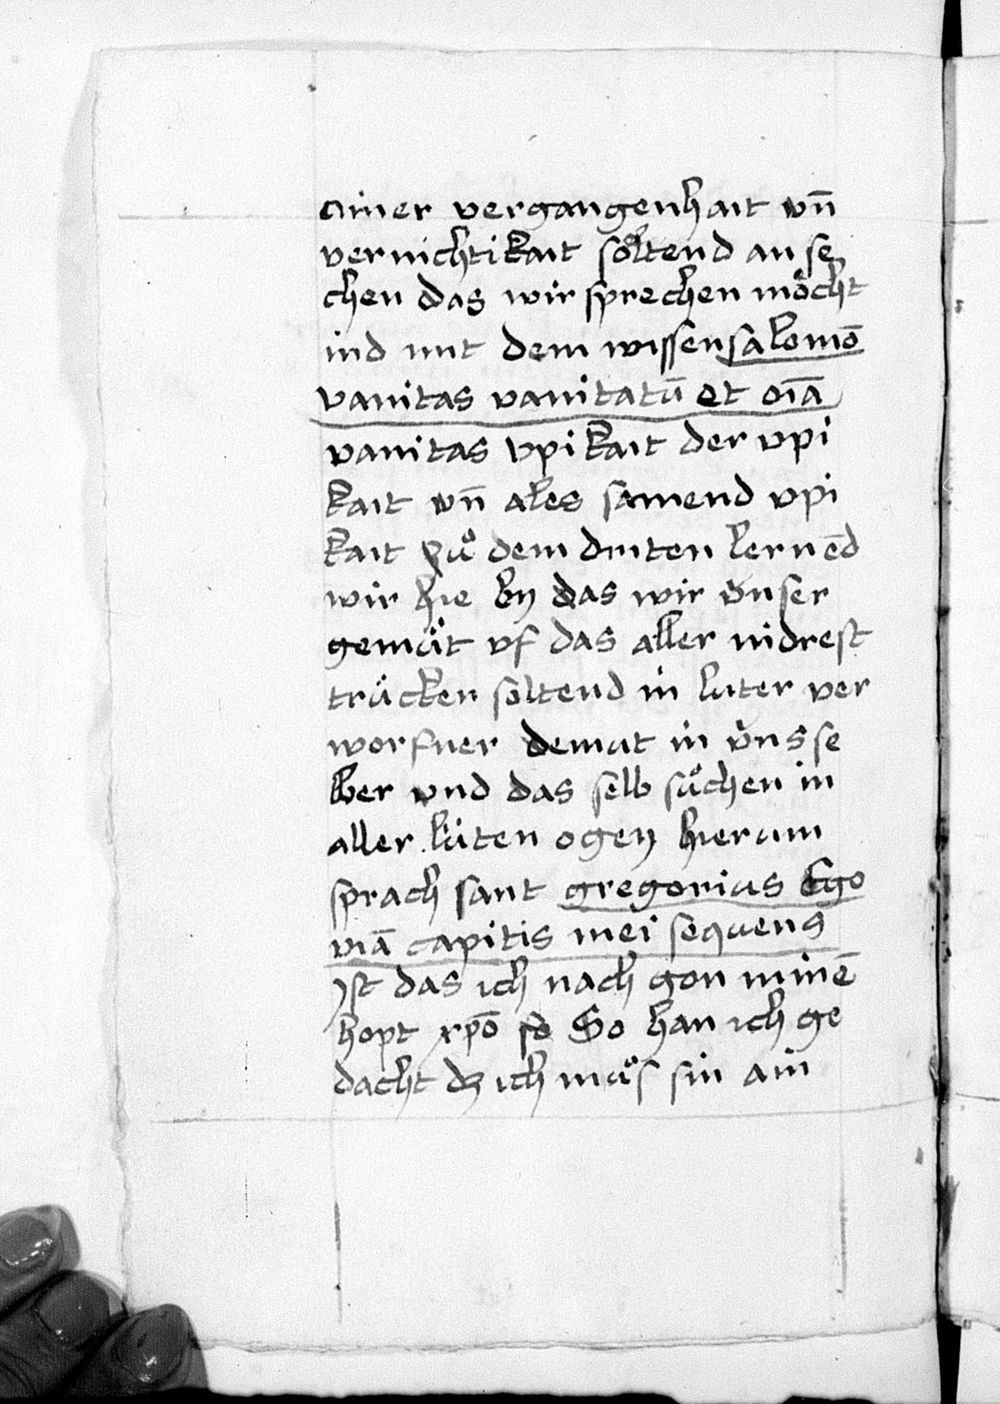 ainer vergangenhait vn̄
vernichtikait söltend an se
chen das wir sprechen möcht
ind mit dem wissen salomō
vanitas vanitatū et oīa
vanitas vpikait der vpi
kait vn̄ ales samend vpi
kait zuͦ dem driten lernēd
wir hie by das wir v̈nser
gemüt vf das aller nidrest
trücken söltend in luter ver
worfner demut in v̈ns se
lber vnd das selb suͦchen in
aller lüten ogen hierum
sprach sant gregorius Ego
viā capitis mei sequens
ist das ich nach gon minē
hopt xp̄o so So han ich ge
dacht dz ich muͦs sin ain